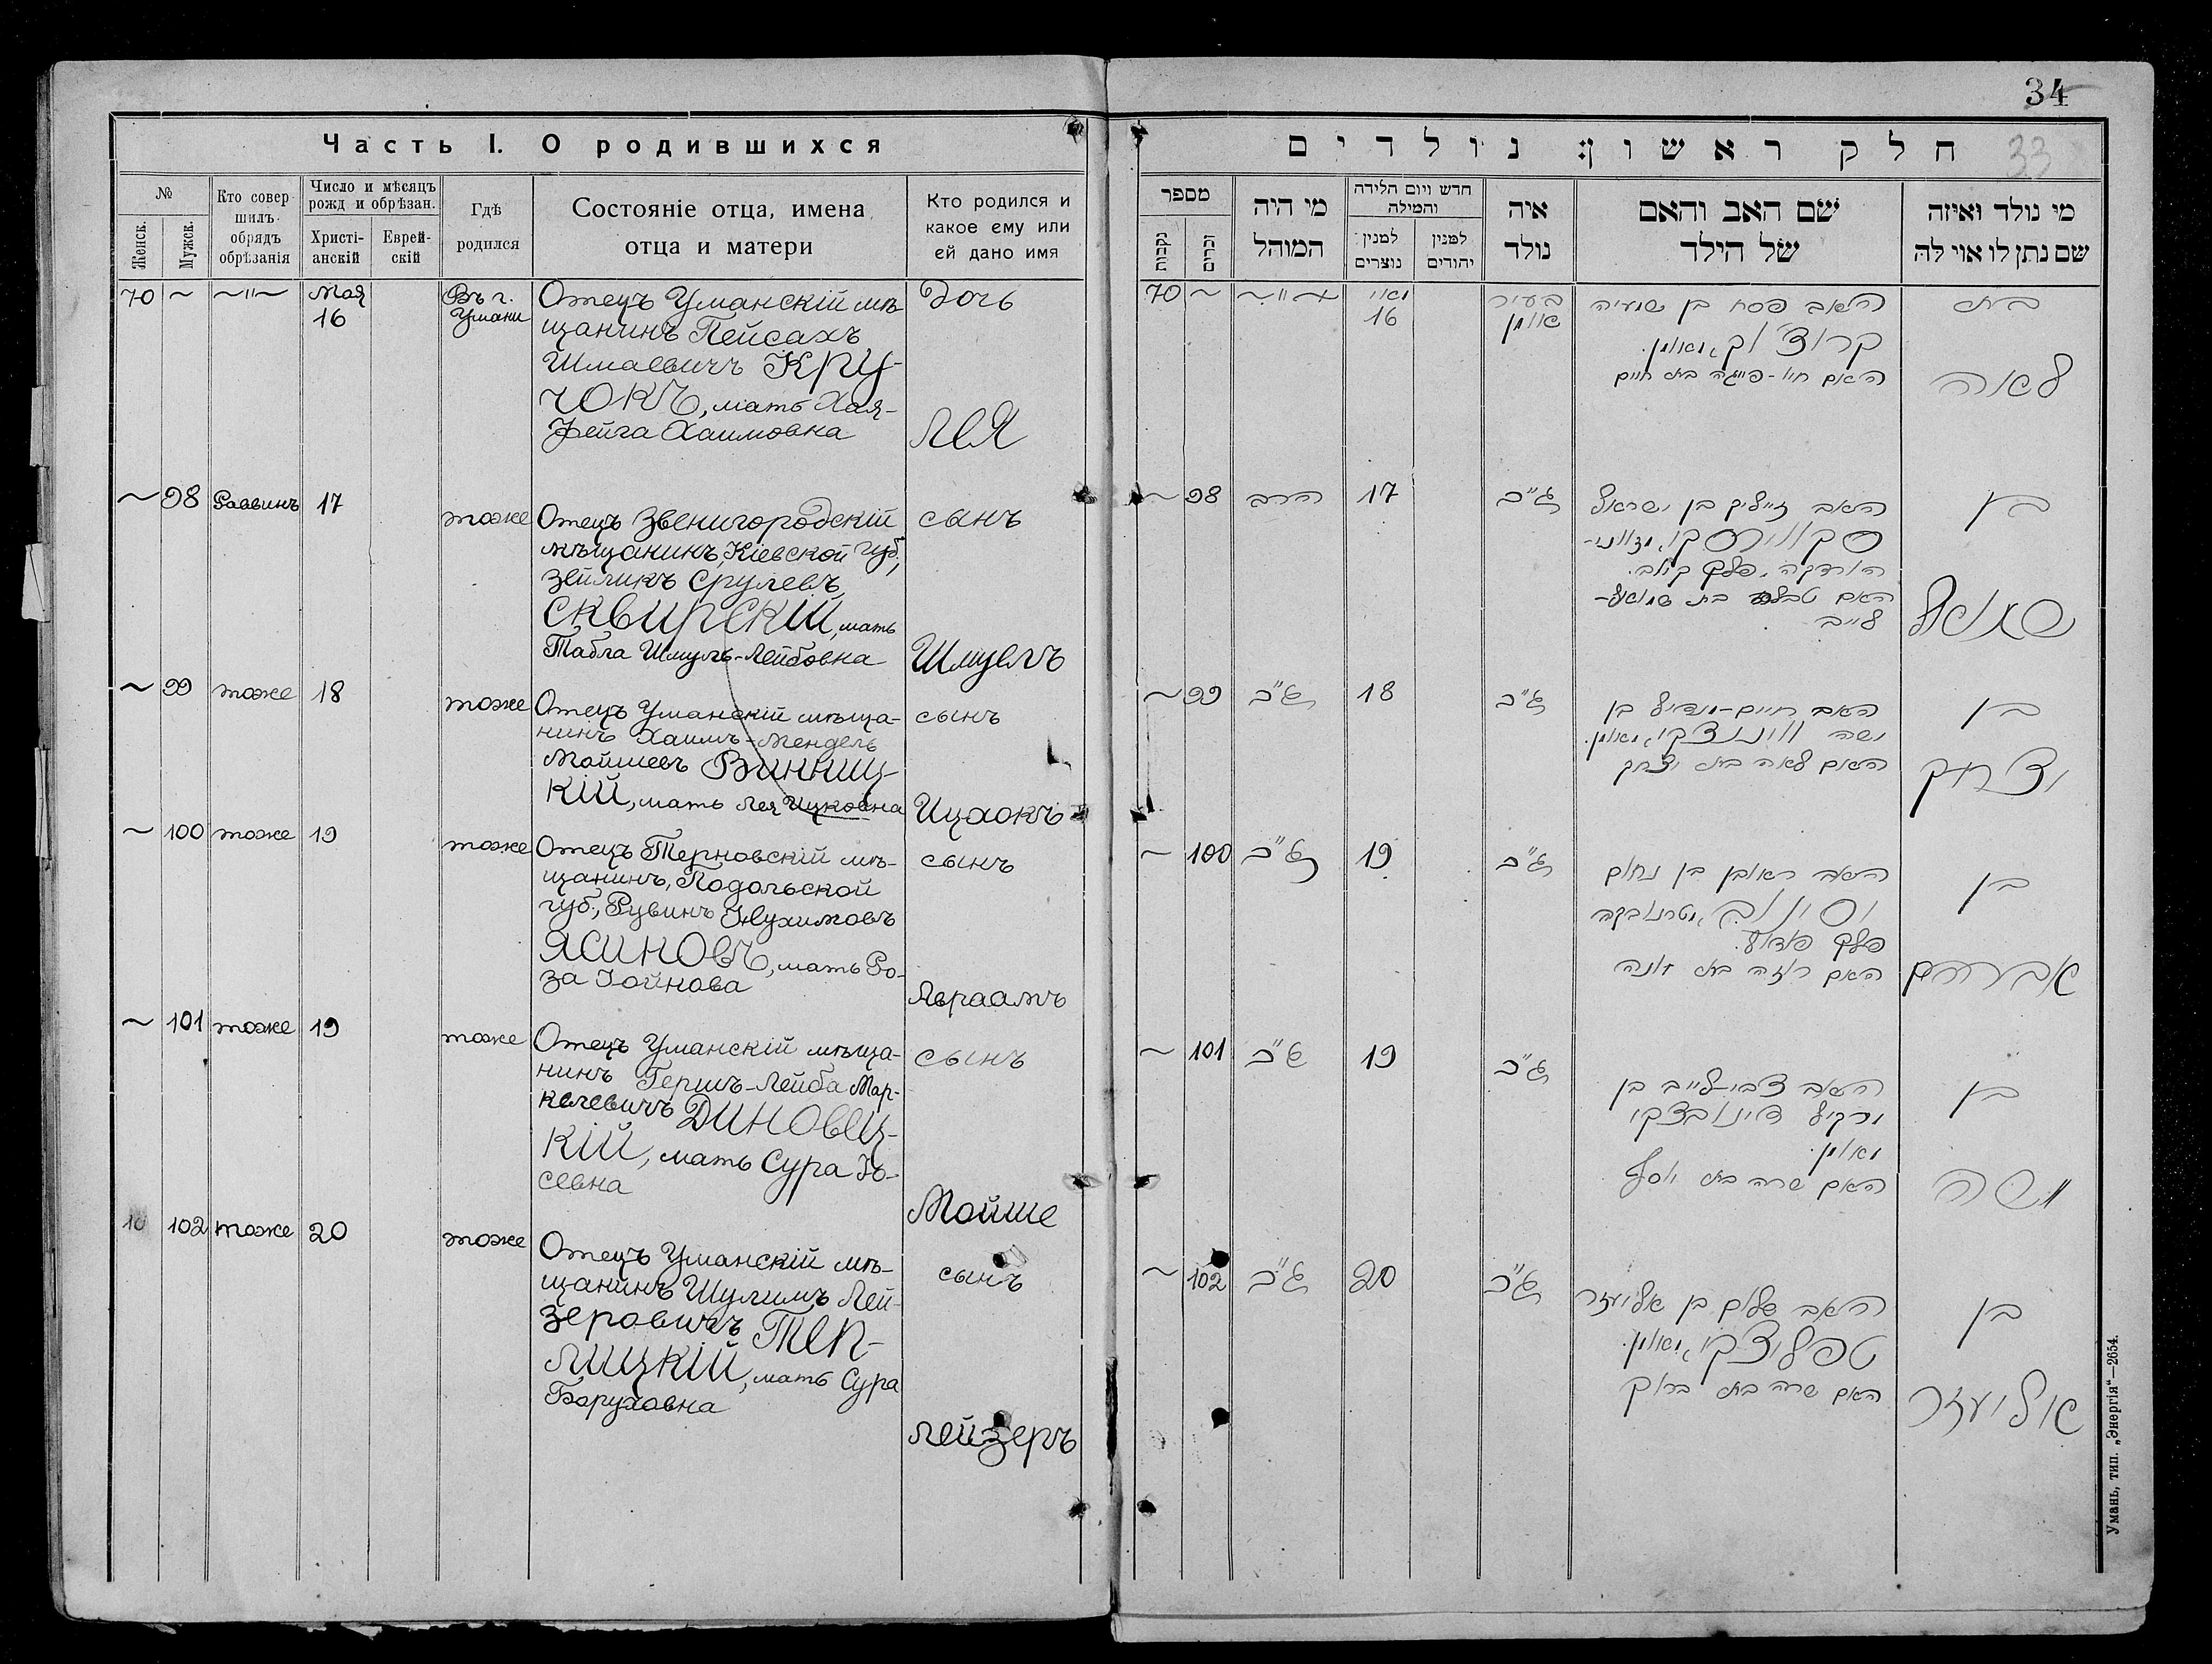 34
33
Часть I. О родившихся
№
Женск.
Мужск.
Кто совер
шилъ
обрядъ
обрѣзанія
Число и мѣсяцъ
рожд и обрѣзан.
Христі-
анскій
Еврей-
скій
Гдѣ
родился
Состояніе отца, имена
отца и матери
Кто родился и
какое ему или
ей дано имя
70 ~ ~"~ Мая
16
Въ г.
Умани
Отецъ Уманскій мѣ-
щанинъ Пейсахъ
Шмаевичъ КРУ-
ЧОКЪ, мать Хая-
Фейга Хаимовна
Дочь
Лея
~ 98 Раввинъ 17
тоже
Отецъ Звенигородскій
мѣщанинъ, Кіевской губ,
Зейликъ Срулевъ
СКВИРСКІЙ, мать
Табла Шмуль-Лейбовна
сынъ
Шмуель
~ 99 тоже 18
тоже
Отецъ Уманскій мѣща-
нинъ Хаимъ-Мендель
Мойшеевъ Винниц-
кій, мать Лея Ицковна
сынъ
Ицхокъ
~ 100 тоже 19
тоже
Отецъ Терновскій мѣ-
щанинъ, Подольской
губ., Рувинъ Нухимовъ
ЯСИНОВЪ, мать Ро-
за Іойнова
сынъ
Авраамъ
~ 101 тоже 19
тоже
Отецъ Уманскій мѣща-
нинъ Гершъ-Лейба Мар-
келевичъ ДИНОВЕЦ-
КІЙ, мать Сура Іо-
севна
сынъ
Мойше
102 тоже 20
тоже
Отецъ Уманскій мѣ-
щанинъ Шулимъ Лей-
зеровичъ ТЕП-
ЛИЦКІЙ, мать Сура
Боруховна
сынъ
Лейзеръ
חלק ראשון: נולדים
מספר
נקבות
זכרים
מי היה
המוהל
חדש ויום הלידה
והמילה
למנין
נוצרים
למנין
יהודים
איה
נולד
שם האב והאם
של הילד
מי נולד ואיזה
שם נתן לו או לה
70 ~ ~"~ מאי
16
בעיר
אומן
האב פסח בן שמעיה
קרוצוק, מאומן.
האם חיה-פייגה בת חיים
בת
לאה
~ 98 הרב 17
ג"כ
האב זייליק בן ישראל
סקווירסקי,
פלך קיוב.
האם טבלה בת שמואל-
לייב
בן
שמואל
~ 99 ג"כ 18
ג"כ
האב חיים-מענדיל בן
משה ווינוצקי, מאומן.
האם לאה בת יצחק
בן
יצחק
~ 100 ג"כ 19
ג"כ
האב ראובן בן נחום
יסינוב, מטרנובקה
פלך פאדאל.
האם רוזה בת יונה
בן
אברהם
~ 101 ג"כ 19
ג"כ
האב צבי-לייב בן
מרקיל דינובצקי
מאומן.
האם שרה בת יוסף
בן
משה
~ 102 ג"כ 20
ג"כ
האב שלום בן אליעזר
טפליצקי, מאומן.
האם שרה בת ברוך
בן
אליעזר
Умань, тип. „Энергія"—2654.